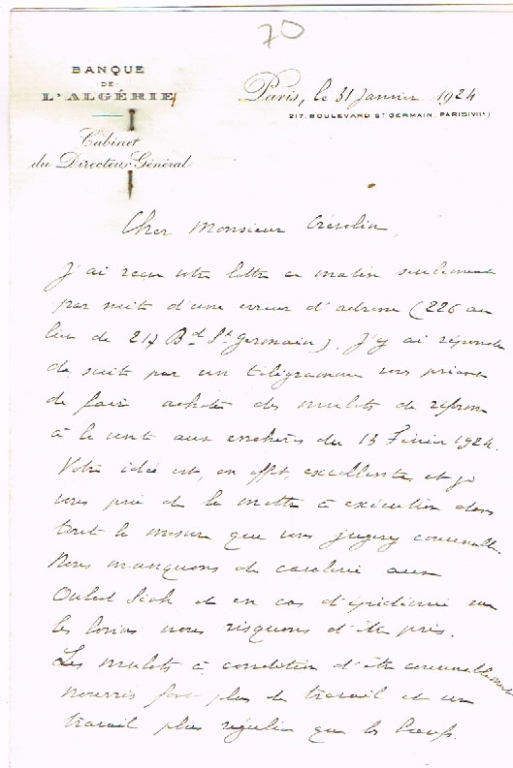 70
BANQUE
DE
L'ALGÉRIE
Cabinet
du Directeur Général
Paris, le 31 Janvier 1924
217, BOULEVARD ST GERMAIN, PARIS (VIIe)
Cher Monsieur
J'ai reçu votre lettre ce matin seulement
par suite d'une erreur d'adresse (226 au
lieu de 217 Bd St Germain). J'y ai répondu
de suite par un télégramme vous priant
de faire acheter des mulets de réforme
à la vente aux enchères du 15 Février 1924.
Votre idée est, en effet, excellente, et je
vous prie de la mettre à exécution dans
toute la mesure que vous jugerez convenable.
Nous manquons de cavalerie aux
Ouled et en cas d'épidémie sur
les bovins nous risquons d'être pris.
Les mulets à condition d'être convenablement
nourris font plus de travail et un
travail plus régulier que les bœufs.